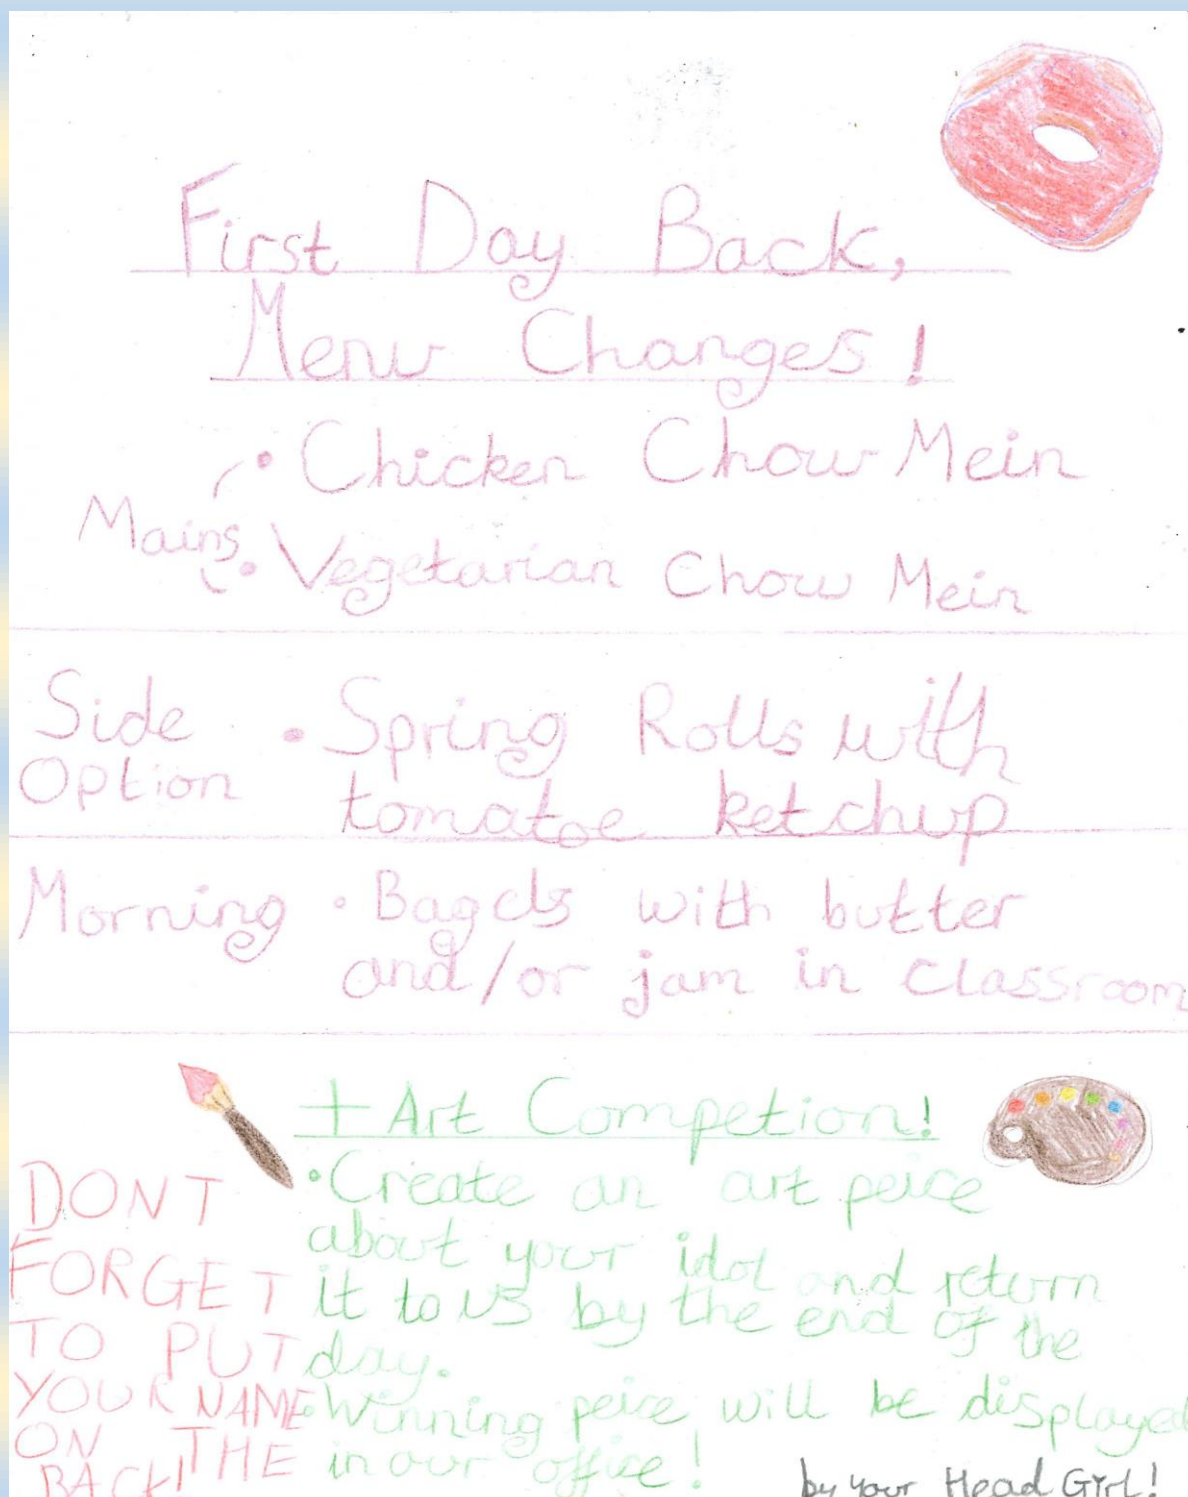 First Day Back,
Menu Changes!
Mains
• Chicken Chow Mein
• Vegetarian Chow Mein
Side
Option
• Spring Rolls with
tomatoe ketchup
Morning
• Bagels with butter
and/or jam in classroom
+ Art Competion!
• Create an art peice
about your idol and return
it to us by the end of the
day.
• Winning peice will be displayed
in our office!
DONT
FORGET
TO PUT
YOUR NAME
ON THE
BACK!
by your Head Girl!